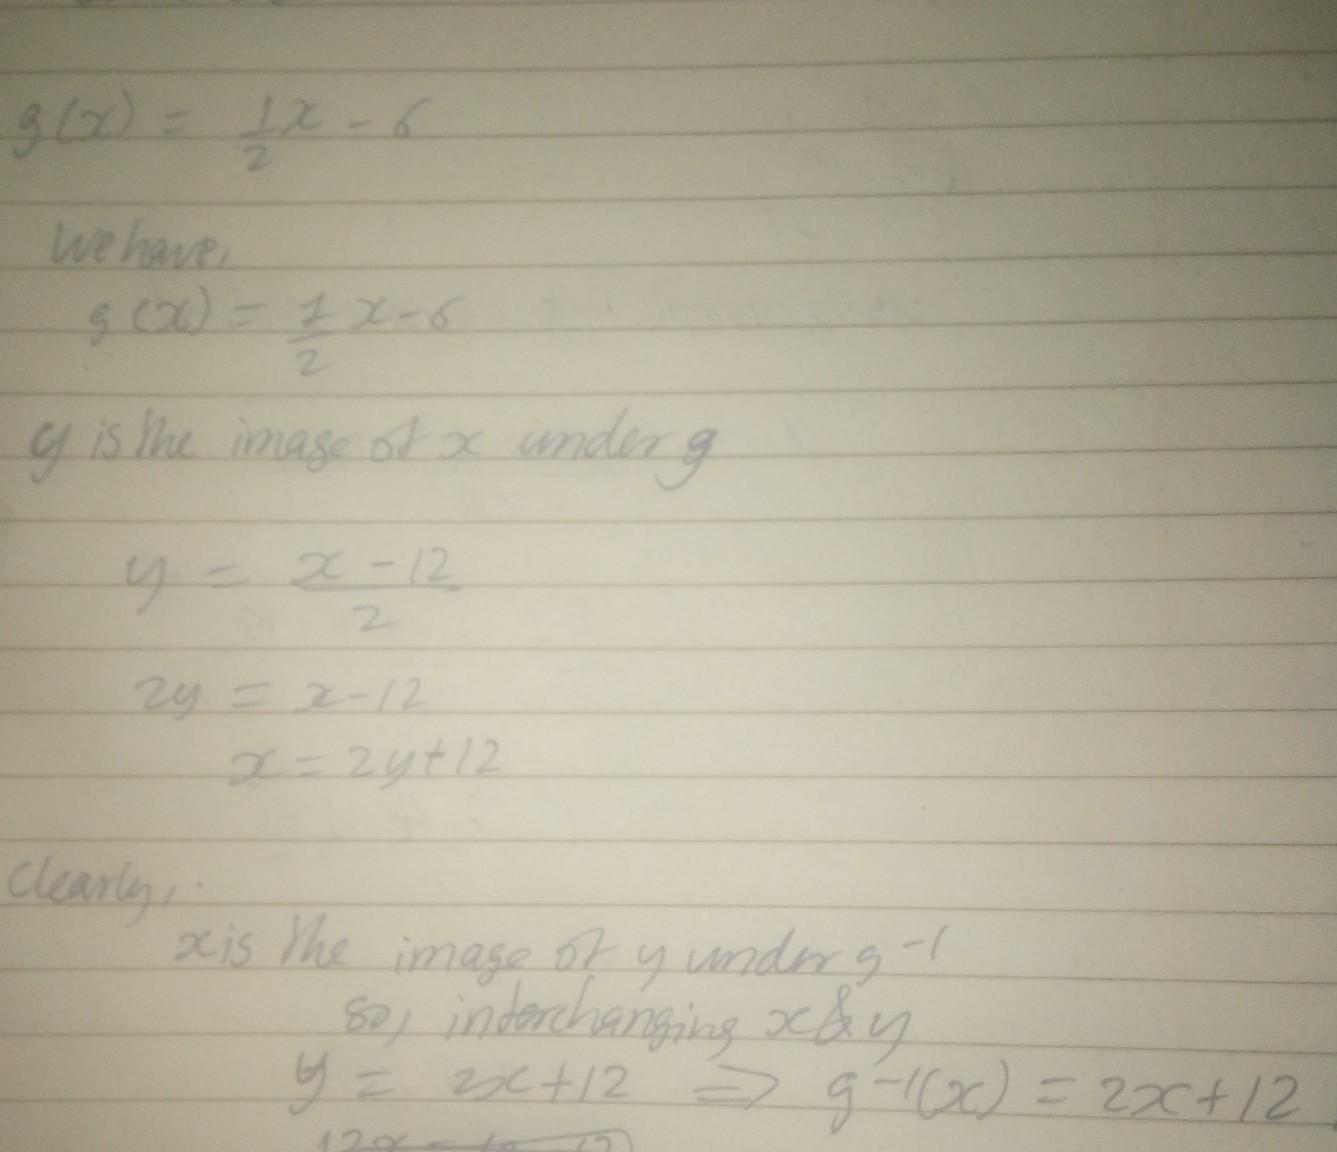 g(x) = 1/2 x - 6
We have,
g(x) = 1/2 x - 6
y is the image of x under g
y = (x - 12)/2
2y = x - 12
x = 2y + 12
Clearly,
x is the image of y under g⁻¹
so, interchanging x & y
y = 2x + 12 ⇒ g⁻¹(x) = 2x + 12